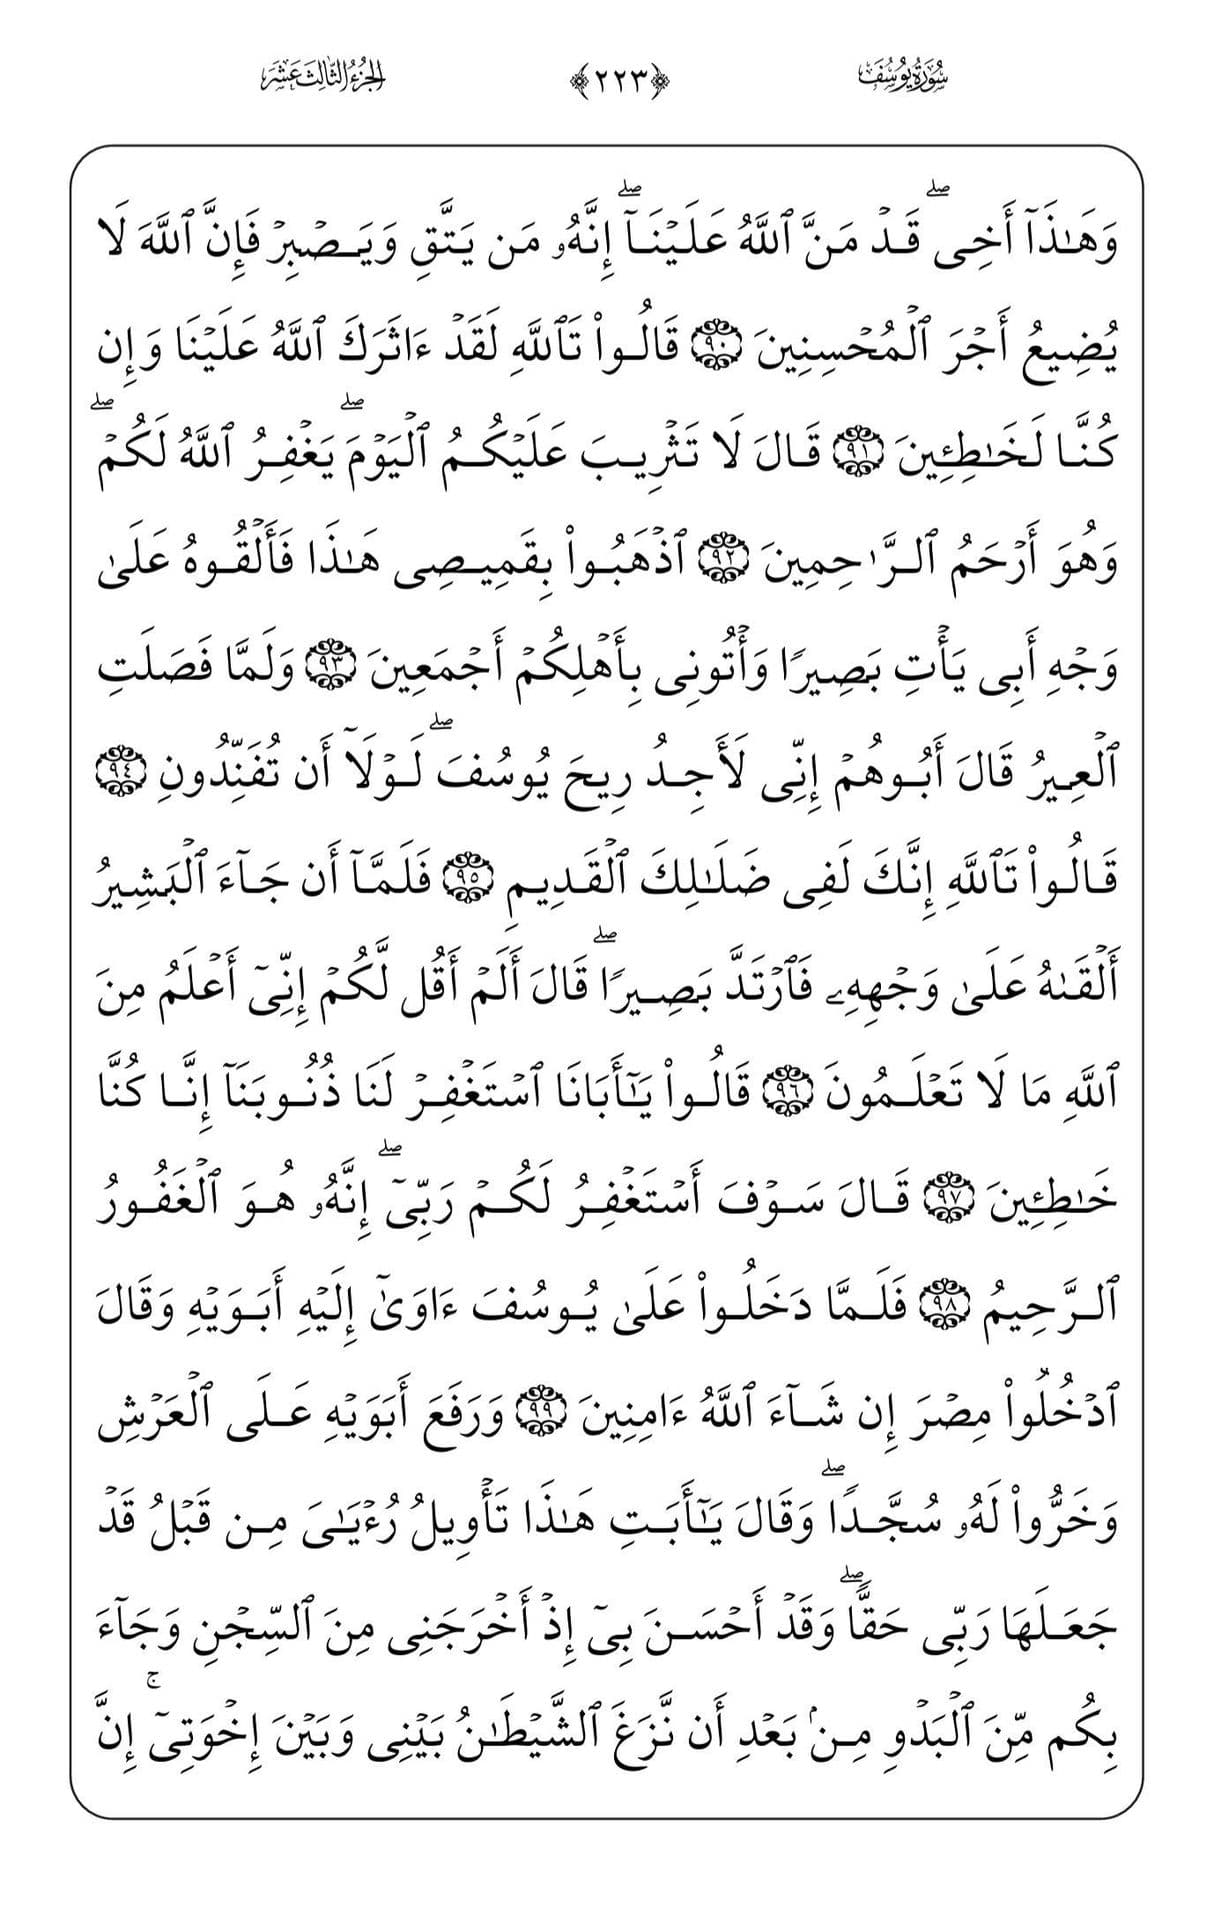 سُورَةُ يُوسُفَ ﴿٢٢٣﴾ الجُزْءُ الثَّالِثَ عَشَرَ
وَهَـٰذَآ أَخِى ۖ قَدۡ مَنَّ ٱللَّهُ عَلَيۡنَآ ۖ إِنَّهُۥ مَن يَتَّقِ وَيَصۡبِرۡ فَإِنَّ ٱللَّهَ لَا
يُضِيعُ أَجۡرَ ٱلۡمُحۡسِنِينَ ٩٠ قَالُوا۟ تَٱللَّهِ لَقَدۡ ءَاثَرَكَ ٱللَّهُ عَلَيۡنَا وَإِن
كُنَّا لَخَـٰطِـِٔينَ ٩١ قَالَ لَا تَثۡرِيبَ عَلَيۡكُمُ ٱلۡيَوۡمَ ۖ يَغۡفِرُ ٱللَّهُ لَكُمۡ ۖ
وَهُوَ أَرۡحَمُ ٱلرَّٰحِمِينَ ٩٢ ٱذۡهَبُوا۟ بِقَمِيصِى هَـٰذَا فَأَلۡقُوهُ عَلَىٰ
وَجۡهِ أَبِى يَأۡتِ بَصِيرًا وَأۡتُونِى بِأَهۡلِكُمۡ أَجۡمَعِينَ ٩٣ وَلَمَّا فَصَلَتِ
ٱلۡعِيرُ قَالَ أَبُوهُمۡ إِنِّى لَأَجِدُ رِيحَ يُوسُفَ ۖ لَوۡلَآ أَن تُفَنِّدُونِ ٩٤
قَالُوا۟ تَٱللَّهِ إِنَّكَ لَفِى ضَلَـٰلِكَ ٱلۡقَدِيمِ ٩٥ فَلَمَّآ أَن جَآءَ ٱلۡبَشِيرُ
أَلۡقَىٰهُ عَلَىٰ وَجۡهِهِۦ فَٱرۡتَدَّ بَصِيرًا ۖ قَالَ أَلَمۡ أَقُل لَّكُمۡ إِنِّىٓ أَعۡلَمُ مِنَ
ٱللَّهِ مَا لَا تَعۡلَمُونَ ٩٦ قَالُوا۟ يَـٰٓأَبَانَا ٱسۡتَغۡفِرۡ لَنَا ذُنُوبَنَآ إِنَّا كُنَّا
خَـٰطِـِٔينَ ٩٧ قَالَ سَوۡفَ أَسۡتَغۡفِرُ لَكُمۡ رَبِّىٓ ۖ إِنَّهُۥ هُوَ ٱلۡغَفُورُ
ٱلرَّحِيمُ ٩٨ فَلَمَّا دَخَلُوا۟ عَلَىٰ يُوسُفَ ءَاوَىٰٓ إِلَيۡهِ أَبَوَيۡهِ وَقَالَ
ٱدۡخُلُوا۟ مِصۡرَ إِن شَآءَ ٱللَّهُ ءَامِنِينَ ٩٩ وَرَفَعَ أَبَوَيۡهِ عَلَى ٱلۡعَرۡشِ
وَخَرُّوا۟ لَهُۥ سُجَّدًا ۖ وَقَالَ يَـٰٓأَبَتِ هَـٰذَا تَأۡوِيلُ رُءۡيَـٰىَ مِن قَبۡلُ قَدۡ
جَعَلَهَا رَبِّى حَقًّا ۖ وَقَدۡ أَحۡسَنَ بِىٓ إِذۡ أَخۡرَجَنِى مِنَ ٱلسِّجۡنِ وَجَآءَ
بِكُم مِّنَ ٱلۡبَدۡوِ مِنۢ بَعۡدِ أَن نَّزَغَ ٱلشَّيۡطَـٰنُ بَيۡنِى وَبَيۡنَ إِخۡوَتِىٓ ۚ إِنَّ